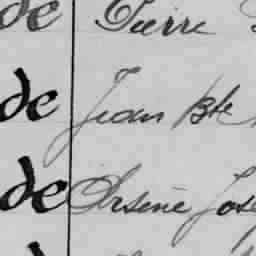 de Pierre
de Jean Bte
de Arsène Jos